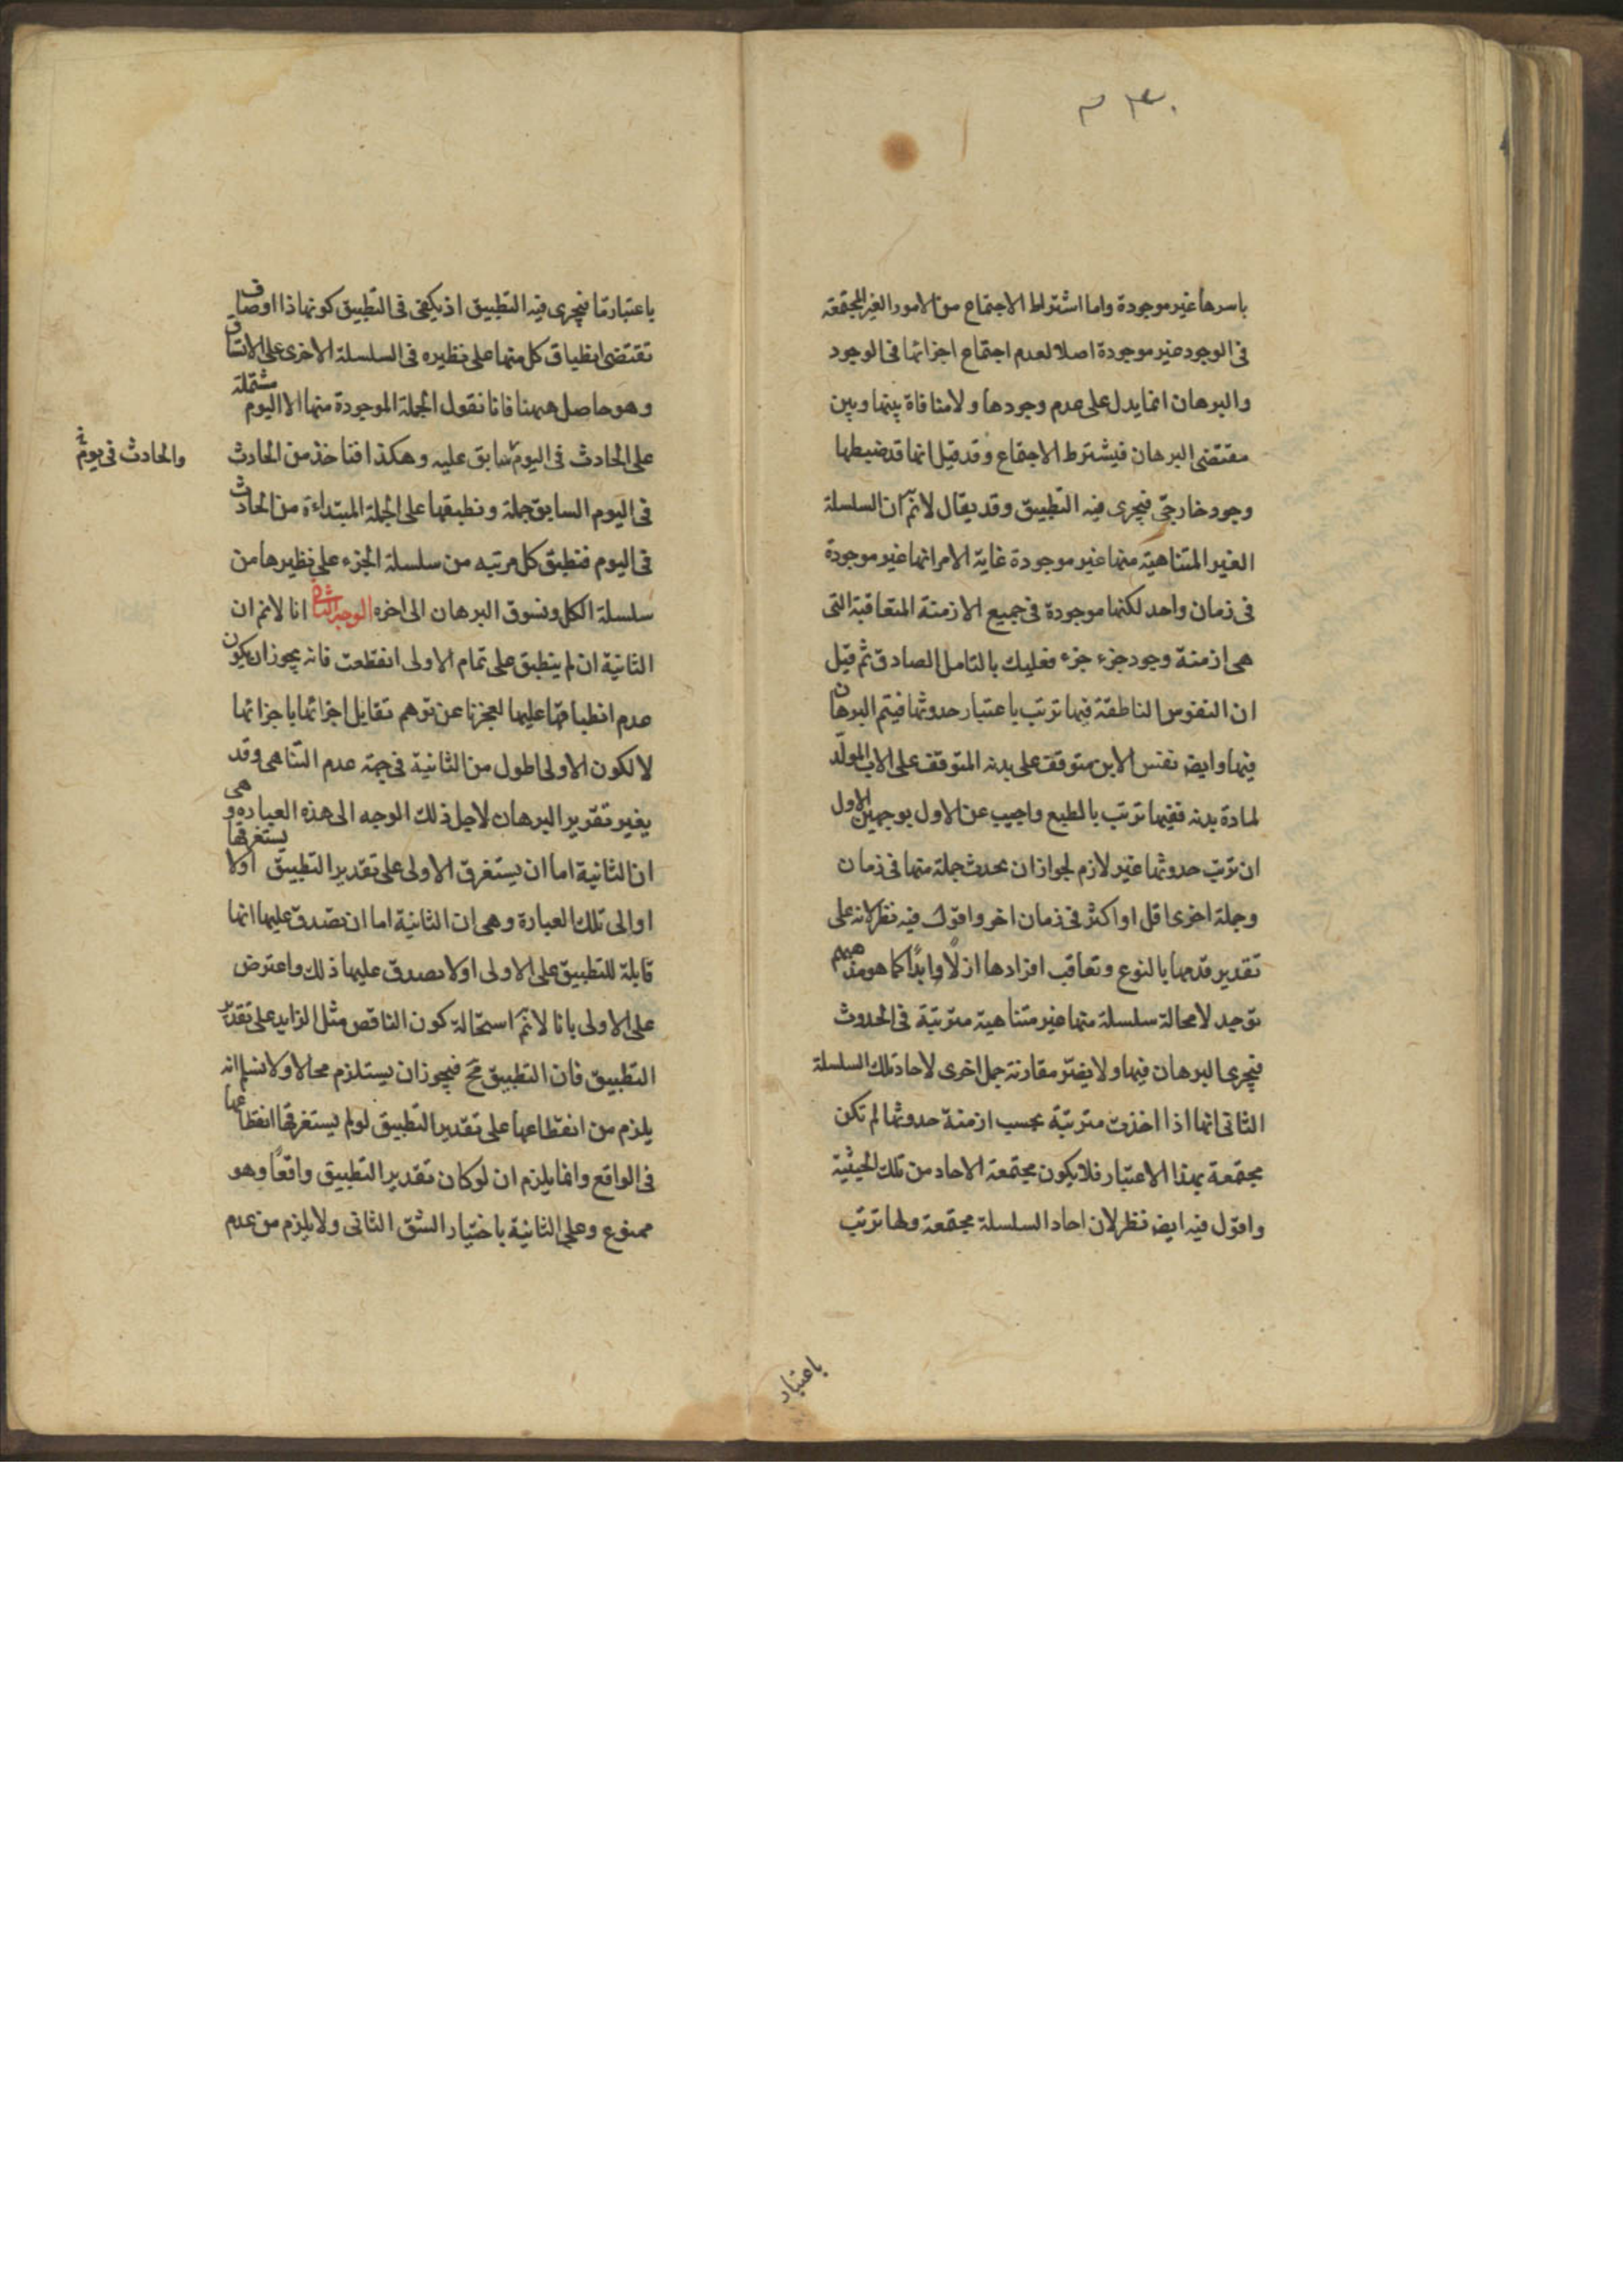 باسرها غير موجودة واما اشتراط الاجتماع من الامور الغير المجتمعة
فى الوجود غير موجودة اصلا لعدم اجتماع اجزائها فى الوجود
والبرهان انما يدل على عدم وجودها ولا منافاة بينها وبين
مقتضى البرهان فيشترط الاجتماع وقد قيل انها قد ضبطها
وجود خارجى فيجرى فيه التطبيق وقد يقال لانم ان السلسلة
الغير المتناهية منها غير موجودة غاية الامر انها غير موجودة
فى زمان واحد لكنها موجودة فى جميع الازمنة المتعاقبة التى
هى ازمنة وجود جزء جزء فعليك بالتامل الصادق ثم قيل
ان النفوس الناطقة فيها ترتب باعتبار حدوثها فيتم البرهان
فيها وايض نفس الابن متوقف على بدنه المتوقف على الاب المولد
لمادة بدنه ففيها ترتب بالطبع واجيب عن الاول بوجهين الاول
ان ترتب حدوثها غير لازم لجواز ان يحدث جملة منها فى زمان
وجملة اخرى اقل او اكثر فى زمان اخر واقول فيه نظر لانه على
تقدير قدمها بالنوع وتعاقب افرادها ازلًا وابدًا كما هو مذهبهم
توجد لا محالة سلسلة منها غير متناهية مترتبة فى الحدوث
فيجرى البرهان فيها ولا يضر مقارنة جمل اخرى لاحاد تلك السلسلة
الثانى انها اذا اخذت مترتبة بحسب ازمنة حدوثها لم تكن
مجتمعة بهذا الاعتبار فلا يكون مجتمعة الاحاد من تلك الحيثية
واقول فيه ايض نظر لان احاد السلسلة مجتمعة ولها ترتب
باعتبار
باعتبار ما فيجرى فيه التطبيق اذ يكفى فى التطبيق كونها ذا اوصاف
تقتضى انطباق كل منها على نظيره فى السلسلة الاخرى على الاتساق
وهو حاصل ههنا فانا نقول الجملة الموجودة منها الا اليوم مشتملة
على الحادث فى اليوم سابق عليه وهكذا فناخذ من الحادث
والحادث فى يوم
فى اليوم السابق جملة ونطبقها على الجملة المبتداءة من الحادث
فى اليوم فتطبق كل مرتبه من سلسلة الجزء على نظيرها من
سلسلة الكل ونسوق البرهان الى اخره الوجه الثانى انا لانم ان
الثانية ان لم ينطبق على تمام الاولى انقطعت فانه يجوز ان يكون
عدم انطباقها عليها لعجزنا عن توهم تقابل اجزائها باجزائها
لا لكون الاولى اطول من الثانية فى جهة عدم التناهى وقد
يغير تقرير البرهان لاجل ذلك الوجه الى هذه العباره وهى
ان الثانية اما ان يستغرق الاولى على تقدير التطبيق اولا يستغرقها
او الى تلك العبارة وهى ان الثانية اما ان تصدق عليها انها
قابلة للتطبيق على الاولى اولا تصدق عليها ذلك واعترض
على الاولى بانا لانم استحالة كون الناقص مثل الزايد على تقدير
التطبيق فان التطبيق مح فيجوز ان يستلزم محالا ولا نسلم انه
يلزم من انقطاعها على تقدير التطبيق لو لم يستغرقها انقطاعها
فى الواقع وانما يلزم ان لو كان تقدير التطبيق واقعًا وهو
ممنوع وعلى الثانية باختيار الشق الثانى ولا يلزم من عدم